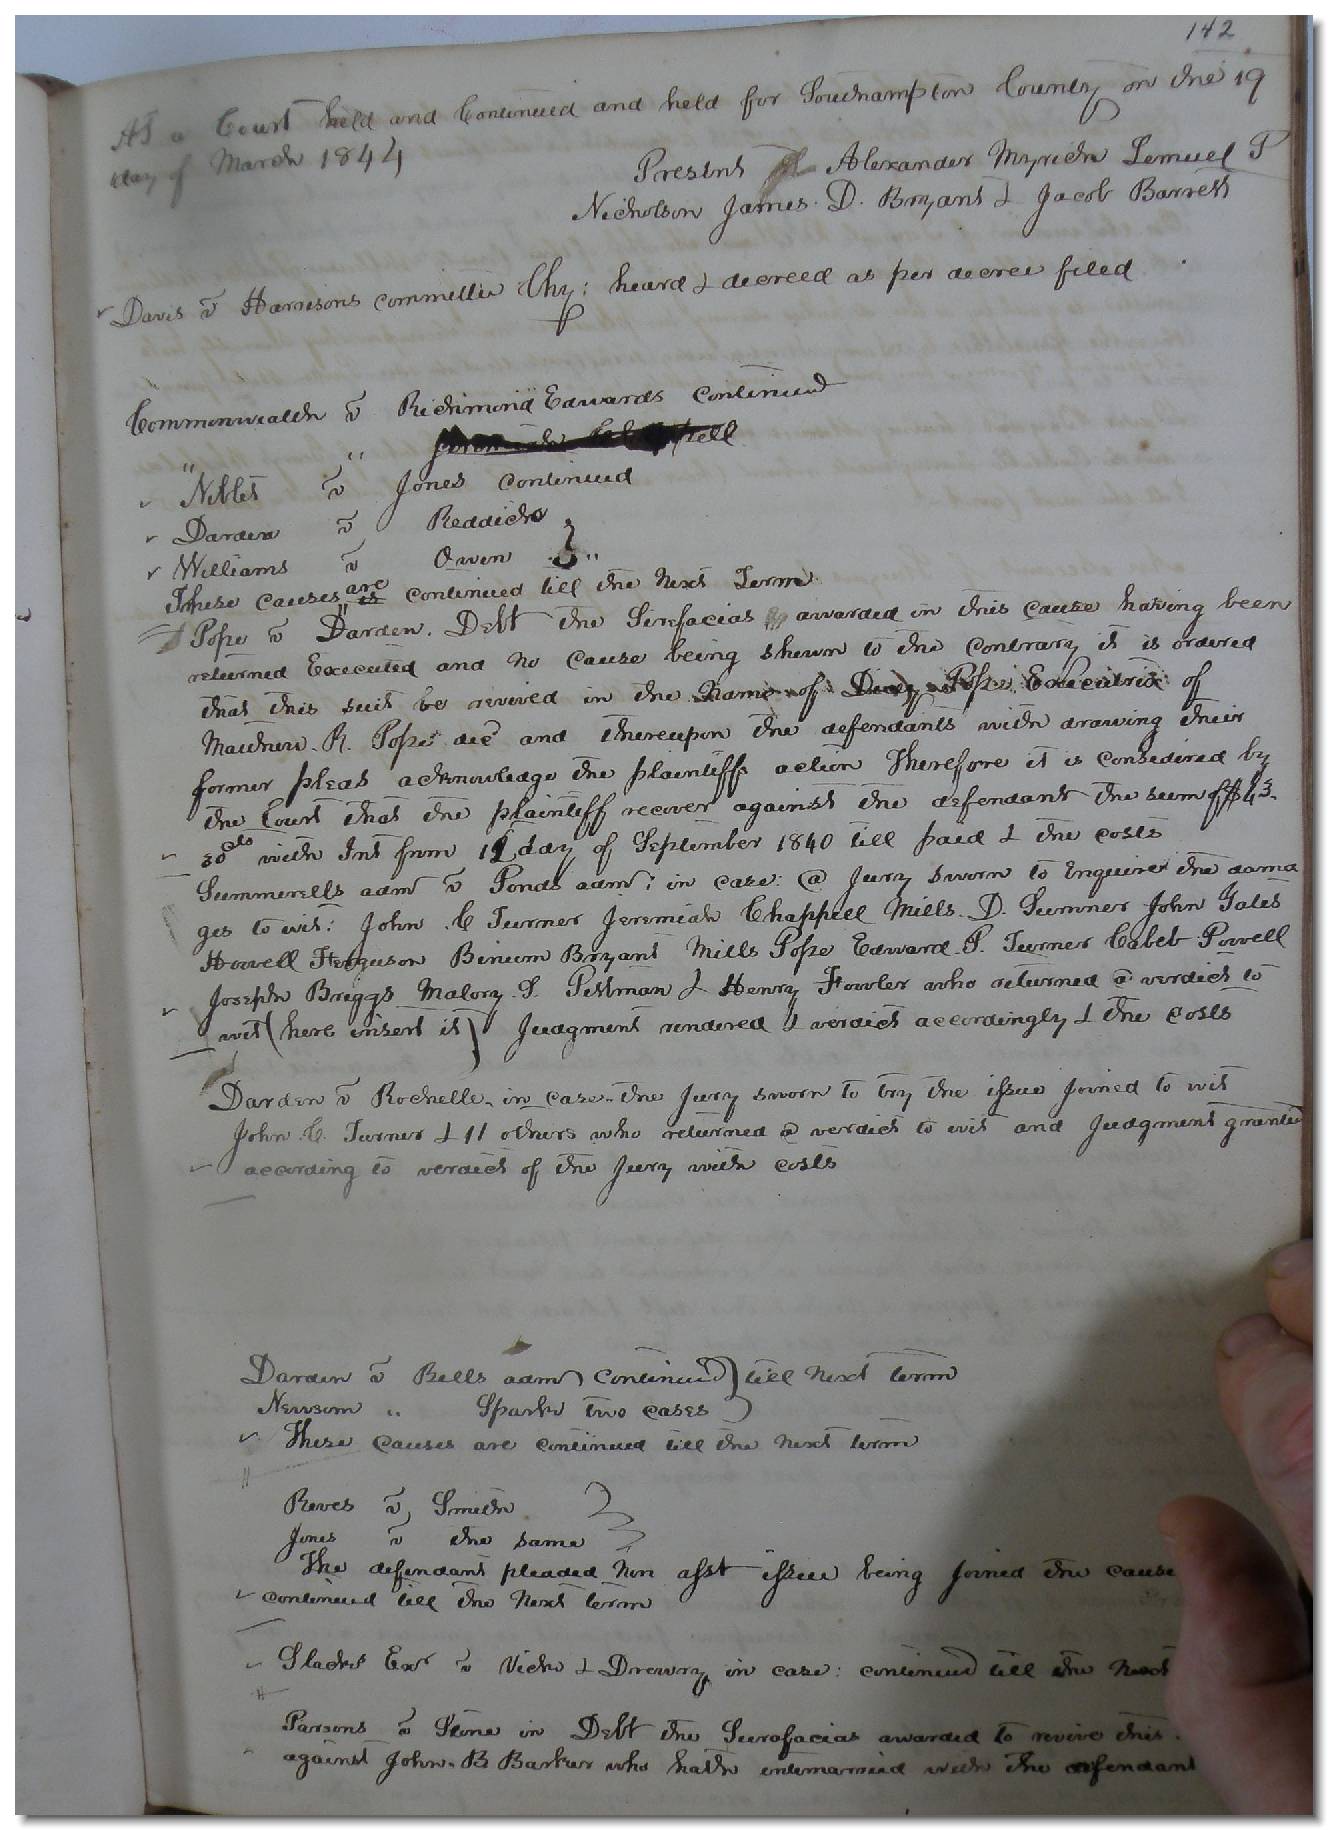 142
At a Court held and Continued and held for Southampton County on the 19
day of March 1844
Present Alexander Myrick Lemuel P
Nicholson James D. Bryant & Jacob Barrett
Davis v Harrisons committee Chy: heard & decreed as per decree filed
Commonwealth v Richmond Edwards continued
" "
Niblet v Jones continued
Darden v Reddick
Williams v Owen
These causes are is continued till the next Term
Pope v Darden. Debt the Sirefacias awarded in this cause having been
returned Executed and no cause being shewn to the contrary it is ordered
that this suit be revived in the Name of Pope Executrix of
Mathew. R. Pope decd and thereupon the defendants with drawing their
former pleas acknowledge the plaintiffs action Therefore it is considered by
the Court that the plaintiff recover against the defendant the sum of $43.
30cts with Int from day of September 1840 till paid & the costs
Summerells admr v Ponds admr: in case: a Jury sworn to Enquire the dama
ges to wit: John C Turner Jeremiah Chappell Mills. D. Sumner John Gates
Howell Ferguson Binum Bryant Mills Pope Edward. P. Turner Caleb Powell
Joseph Briggs Malory. S. Pittman & Henry Fowler who returned a verdict to
wit (here insert it) Judgment rendered & verdict accordingly & the costs
Darden v Rochelle in case the Jury sworn to try the issue joined to wit
John C. Turner & 11 others who returned a verdict to wit and Judgment granted
according to verdict of the Jury with costs
Darden v Bells adm) continued) till next term
Newsom " Spark two cases )
These causes are continued till the next term
Reves v Smith
Jones v the same
The defendant pleaded non asst issue being joined the cause
continued till the next term
Slacks Exr v Vick & Drewry in case: continued till the next
Parsons v Stone in Debt the Surefacias awarded to revive this
against John. B Barker who hath intermarried with the defendant